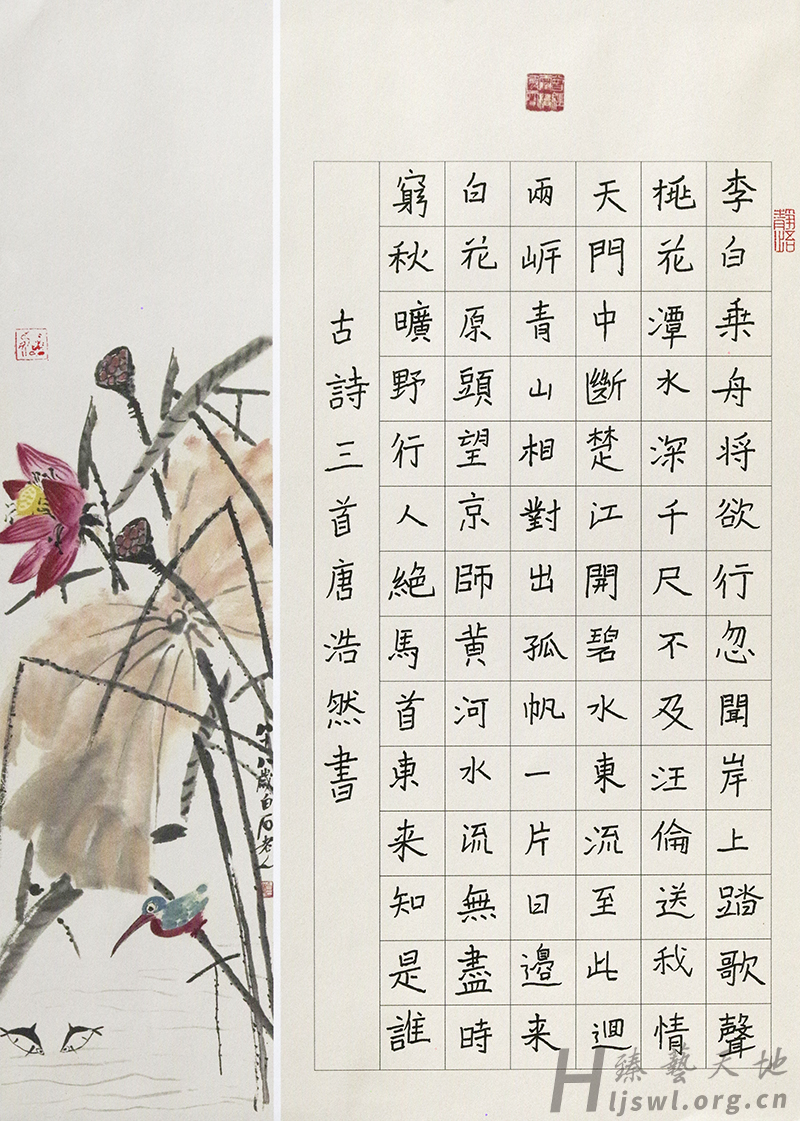 李白乘舟将欲行忽聞岸上踏歌聲
桃花潭水深千尺不及汪倫送我情
天門中斷楚江開碧水東流至此迴
兩岸青山相對出孤帆一片日邊来
白花原頭望京師黄河水流無盡時
窮秋曠野行人絶馬首東来知是誰
古詩三首唐浩然書
八十八歲白石老人
臻藝天地
Hljswl.org.cn